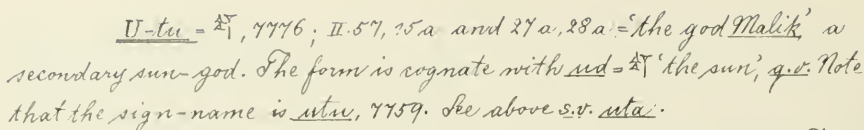 U-tu = 𒌓, 7776; II. 57, 15a and 27a, 28a = 'the god Malik', a
secondary sun-god. The form is cognate with ud = 𒌓 'the sun', q.v. Note
that the sign-name is utu, 7759. See above s.v. uta.